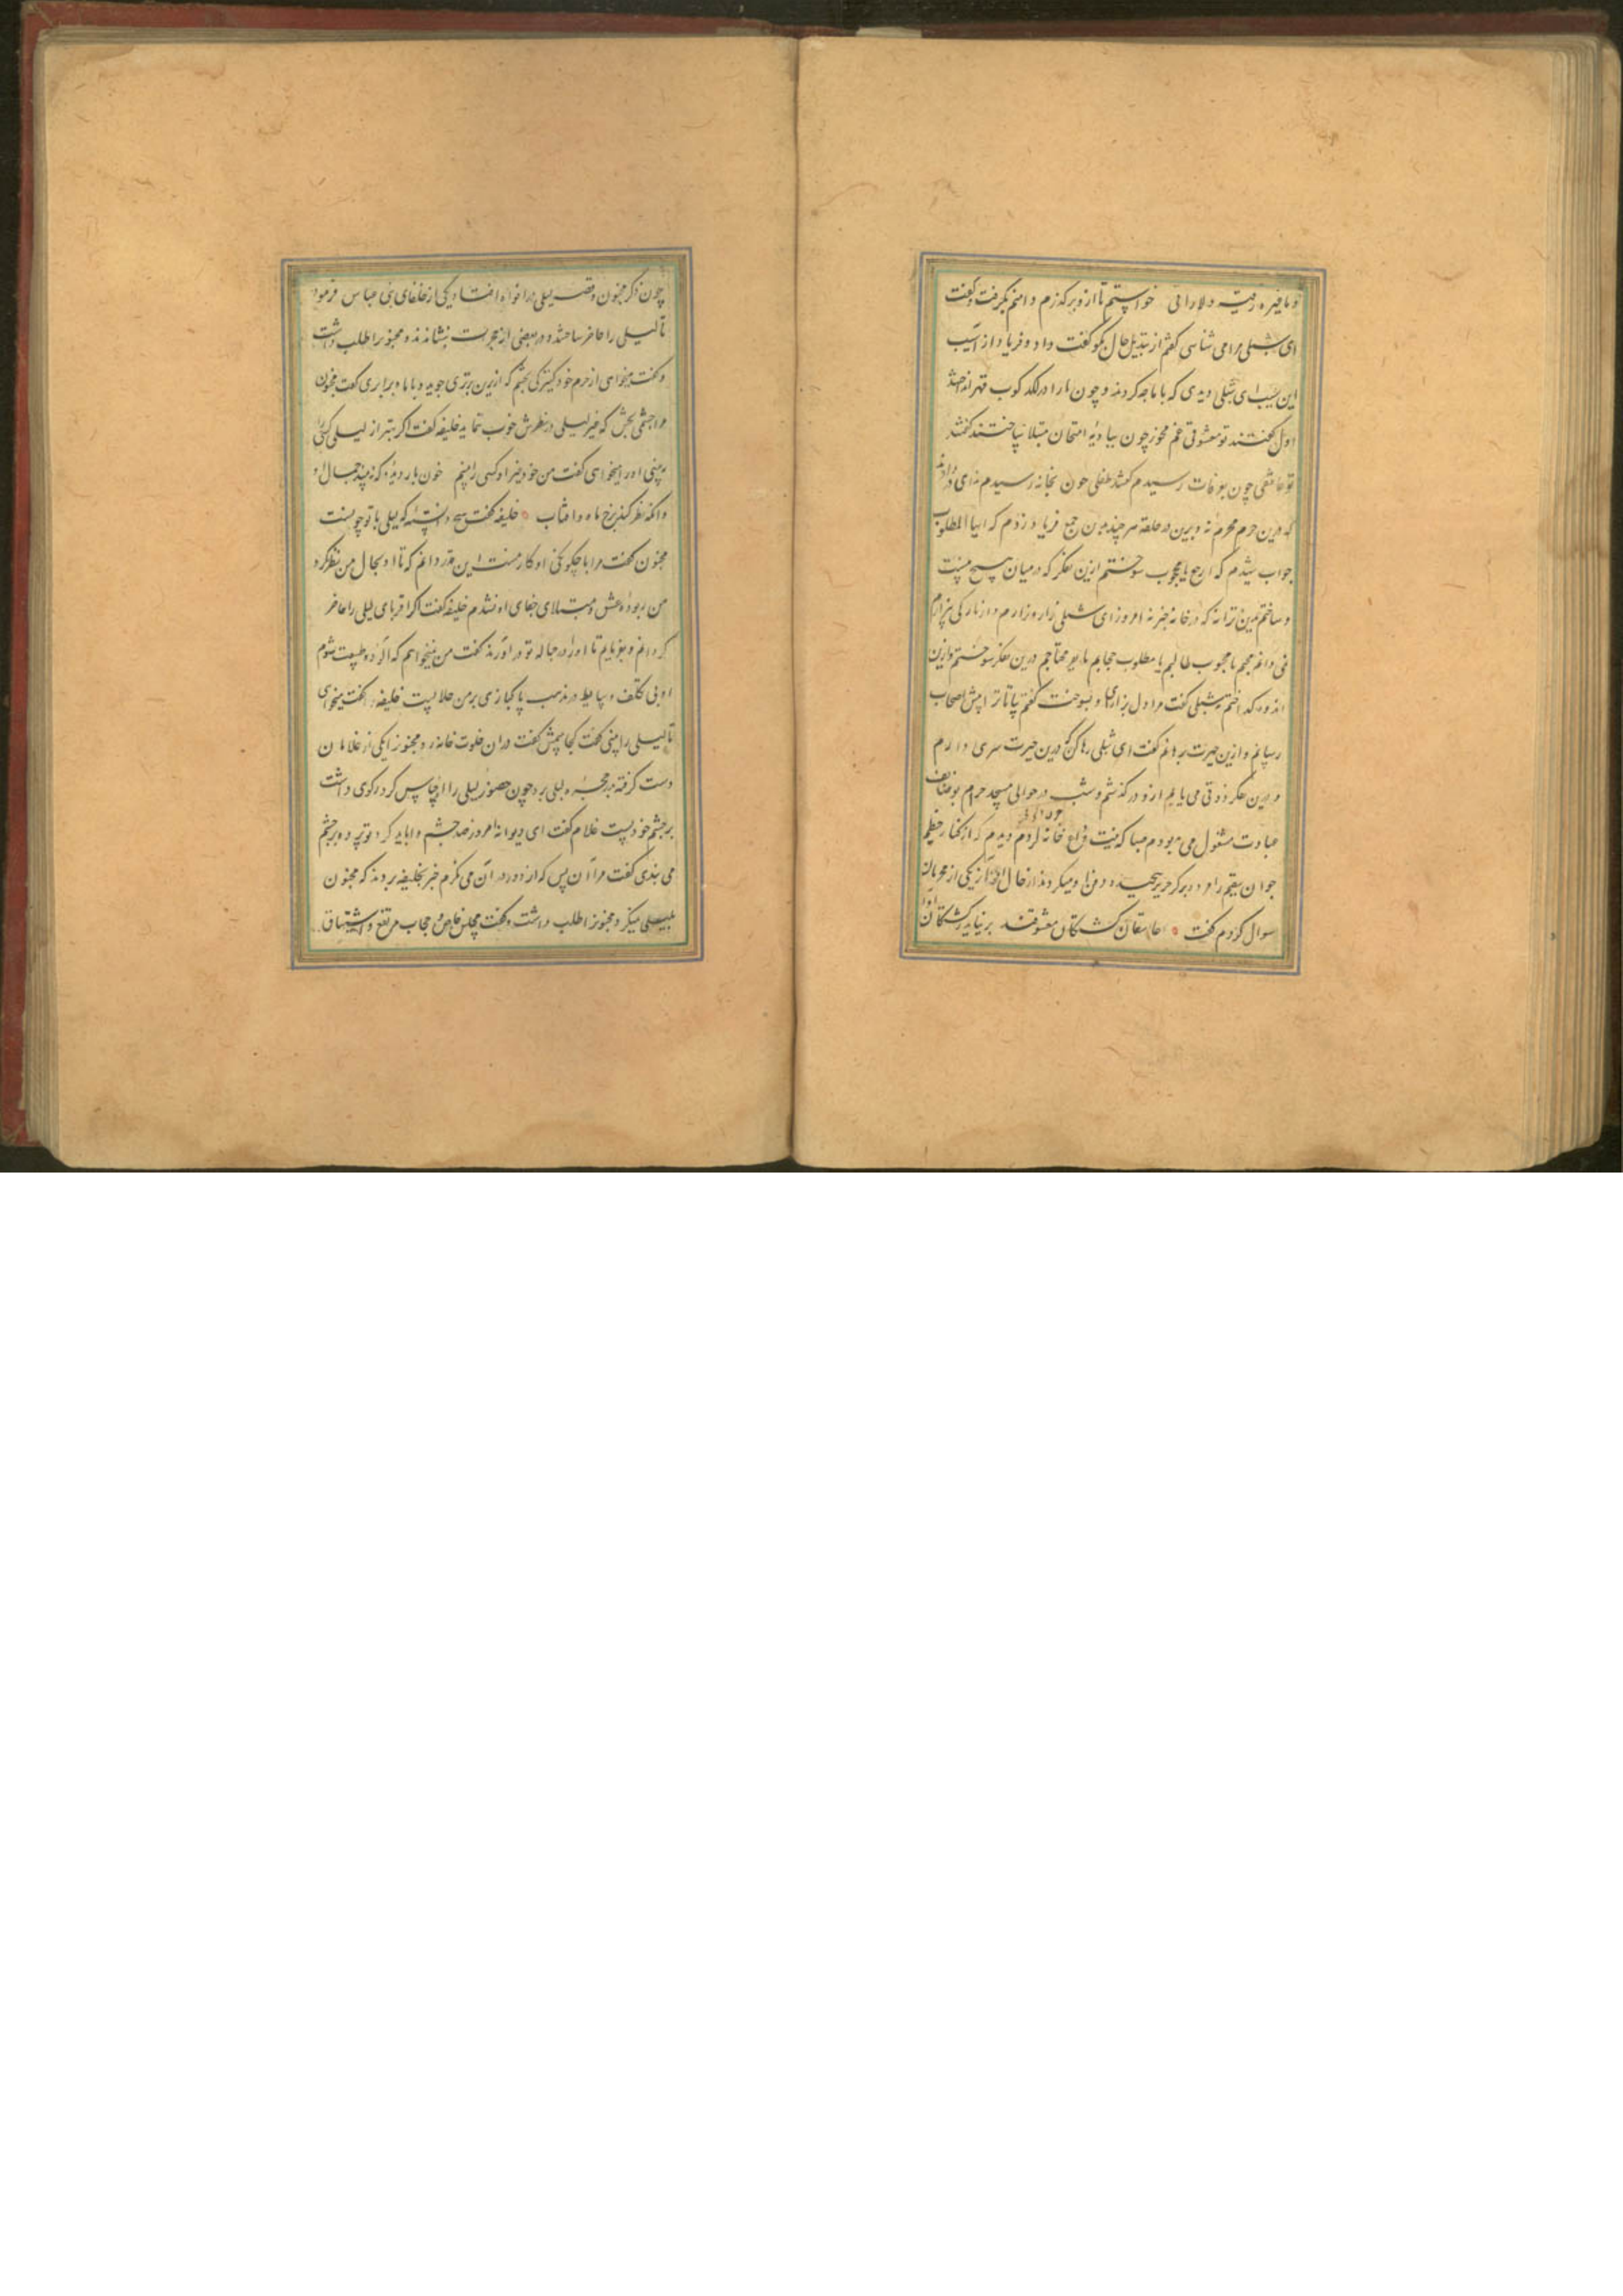 خواستم تا ازو برگذرم دامنم بگرفت و گفت
ای شبلی مرا می شناسی گفتم از تبدیل حال بگو گفت داد و فریاد از آسیب
این شیب ای شبلی دیدی که با ما چه کردند و چون ما را در لکد کوب قهر انداختند
اول گفتند تو معشوقی غم مخور چون ببادیه امتحان مبتلا ساختند گفتند
تو عاشقی چون بعرفات رسیدم گفتند طفلی چون بخانه رسیدم ندای در دادند
که درین حرم محرم نه و برین در حلقه فریاد زدم که ایها المطلوب
جواب شنیدم که ارجع یا محجوب سوختم ازین تفکر که در میان هیچ نیست
و ساختم بدین ترانه که در خانه جز نه امروز ای شبلی زار و زارم و از نارکی بیزارم
نمی دانم محبم یا محبوب طالبم یا مطلوب درین تفکر سوختم وازین
اندوه گداختم شبلی گفت مرا دل بزاری او بسوخت گفتم بیا تا ترا پیش اصحاب
رسانم و ازین حیرت برهانم گفت ای شبلی رها کن که درین حیرت سری دارم
و درین تفکر ذوقی می یابم ازو درگذشتم و شب در حوالی مسجد حرام بوظایف
عبادت مشغول می بودم صباح که نیت وداع خانه کردم دیدم که از کنار حطیم
جوان سقیم را مرده در حریر پیچیده دفن او میکردند از حال او از یکی از محرمان
سوال کردم گفت عاشقان کشتگان معشوقند بر نیاید ز کشتگان آواز
چون ذکر مجنون و قصه لیلی در افواه افتاد یکی از خلفای بنی عباس فرمود
تا لیلی را حاضر ساختند و در بعضی از حجرات بنشاندند و مجنون را طلب داشت
و گفت میخواهی از حرم خود کنیزکی بخشم که ازین برتری جوید و با ماه برابری گفت مجنون
را چشمی بخش که غیر لیلی در نظرش خوب نماید خلیفه گفت اگر بهتر از لیلی کسی را
ببینی او را میخواهی گفت من خود غیر او کسی را نبینم خون بار دیده که نبیند جمال او
وانکه نظر کند برخ ماه و آفتاب خلیفه گفت هیچ دانسته که لیلی با تو چونست
مجنون گفت مرا با چگونگی او کار نیست این قدر دانم که تا او بحال من نظر نکرد
من ربوده عشق و مبتلای جفای او نشدم خلیفه گفت اگر اقربای لیلی را حاضر
گردانم و بفرمایم تا او را در حباله تو در آورند گفت من نمیخواهم که آلوده طبیعت شوم
او بی تکلف وسایط در مذهب پاکبازی بر من حلالست خلیفه گفت میخواهی
تا لیلی را بینی گفت کجا بینمش گفت در ان خلوت خانه و مجنون را یکی از غلامان
دست گرفته در حجره لیلی برد چون حضور لیلی را احساس کرد رکوی داشت
بر چشم خود بست غلام گفت ای دیوانه امروز صد چشم وا باید کرد تو پرده بر چشم
می بندی گفت مرا آن بس که از دور در آن می نگرم خبر بخلیفه بردند که مجنون
طلب داشت و گفت مجلس خاص و حجاب مرتفع و اشتیاق